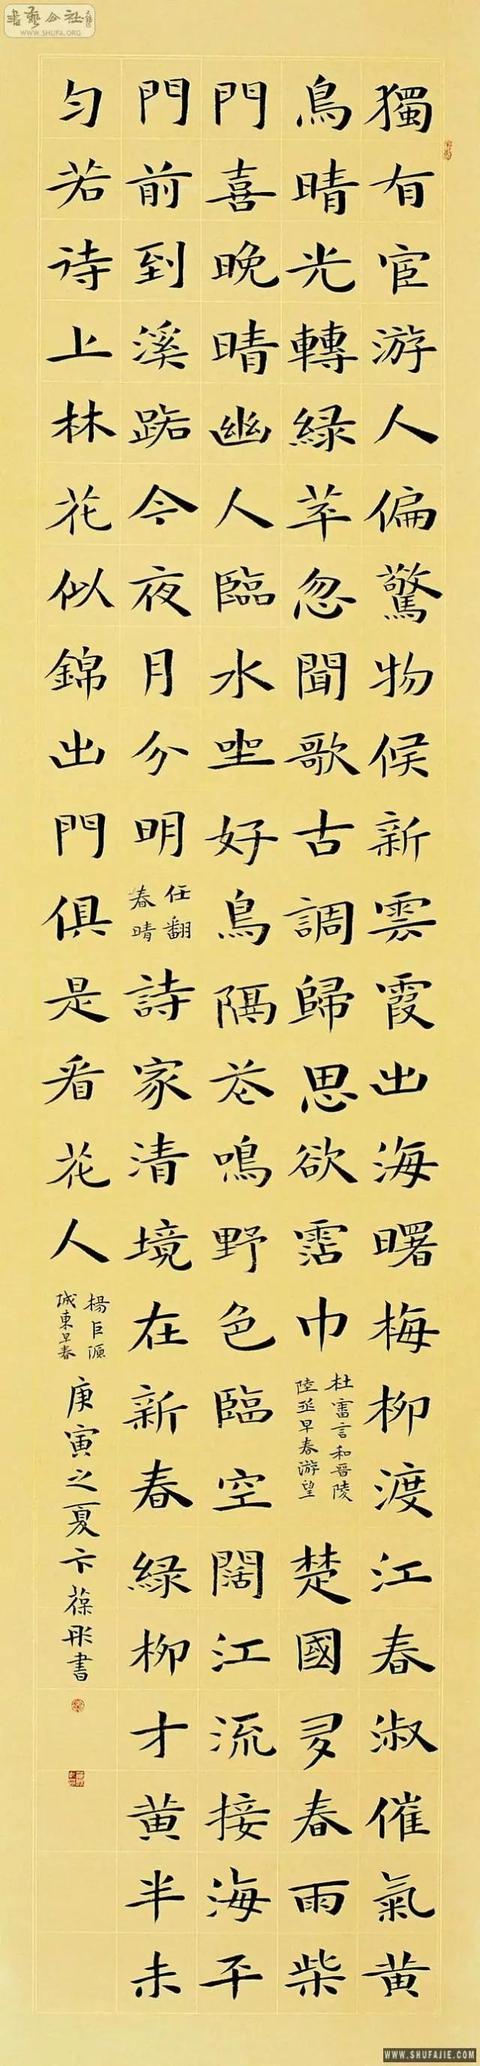 書藝公社
WWW.SHUFA.ORG
獨有宦游人偏驚物候新雲霞出海曙梅柳渡江春淑催氣黃
鳥晴光轉綠苹忽聞歌古調歸思欲霑巾
杜審言和晉陵
陸丞早春游望
楚國多春雨柴
門喜晚晴幽人臨水坐好鳥隔花鳴野色臨空闊江流接海平
門前到溪路今夜月分明
任翻
春晴
詩家清境在新春綠柳才黃半未
勻若待上林花似錦出門俱是看花人
楊巨源
城東早春
庚寅之夏卞葆彤書
www.SHUFAJIE.com